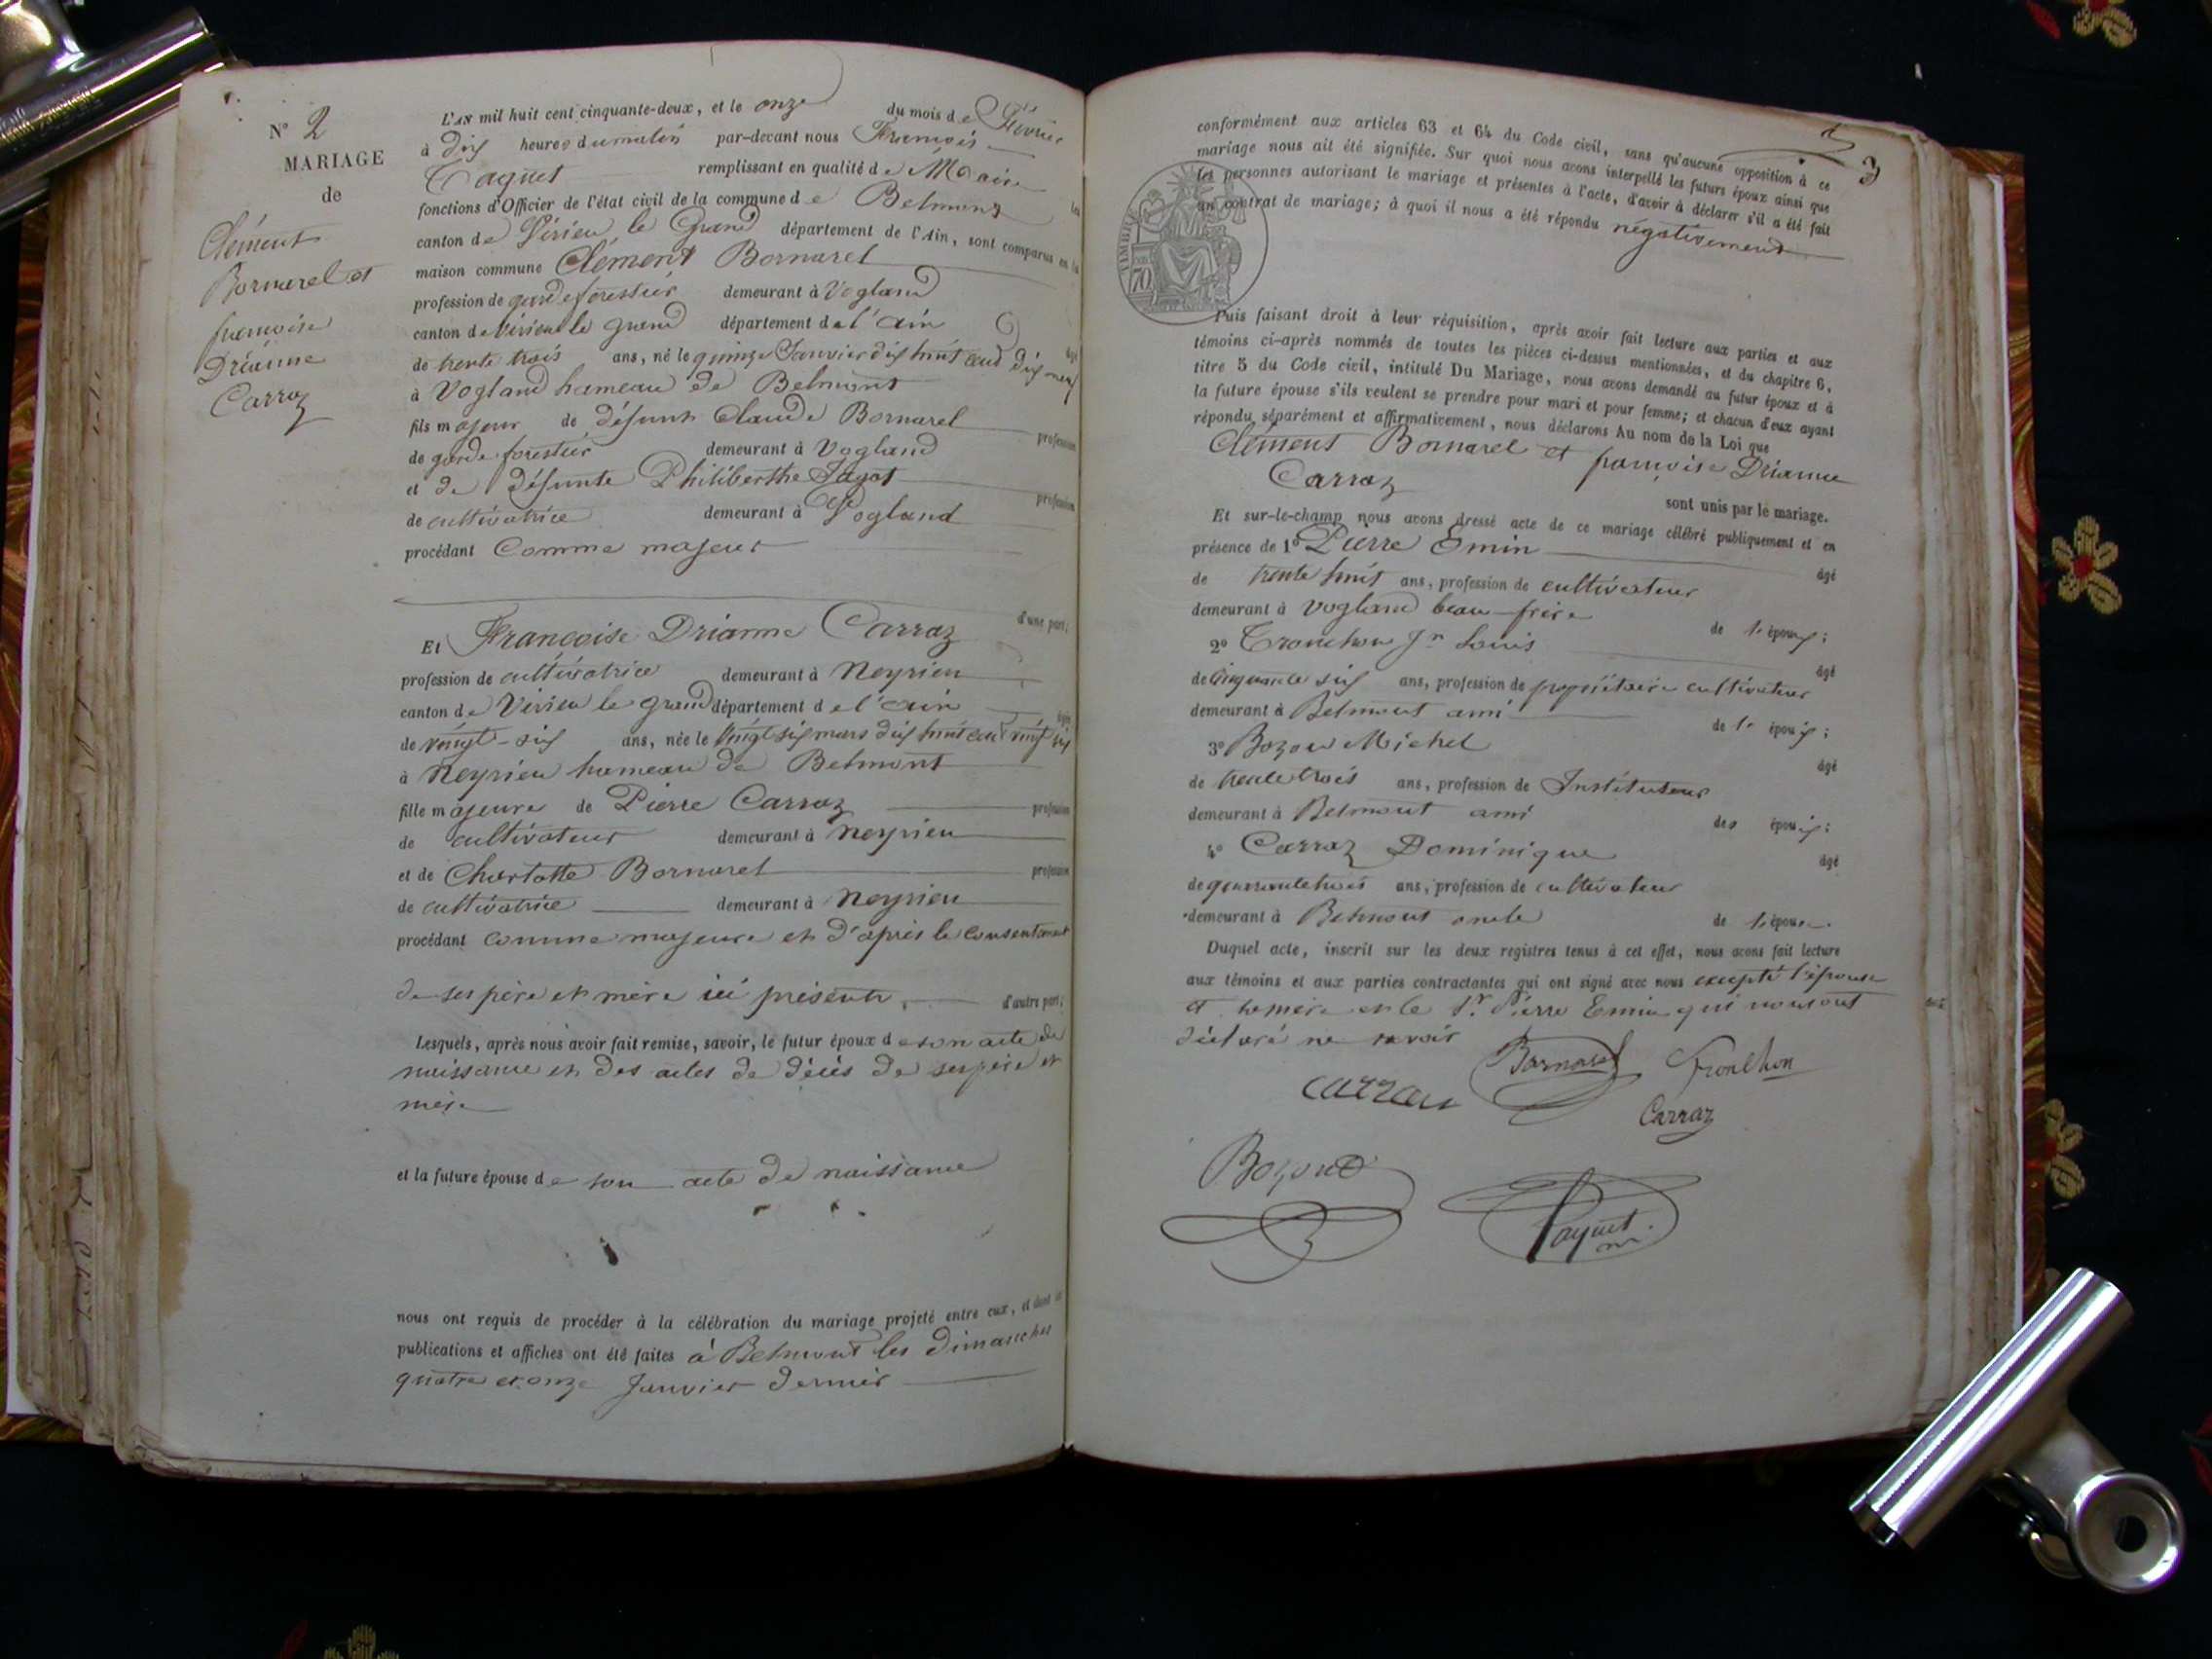 N° 2
MARIAGE
de
Clément
Bornarel et
françoise
Drianne
Carraz
L'AN mil huit cent cinquante-deux, et le onze du mois de Février
à dix heures du matin par-devant nous François
Paquet remplissant en qualité de Maire les
fonctions d'Officier de l'état civil de la commune de Belmont
canton de Virieu le Grand département de l'Ain, sont comparus en la
maison commune Clément Bornarel
profession de garde forestier demeurant à Vogland
canton de Virieu le grand département de l'ain
âgé
de trente trois ans, né le quinze Janvier dix huit cent dix neuf
à Vogland hameau de Belmont
fils majeur de défunt Claude Bornarel profession
de garde forestier demeurant à Vogland
et de défunte Philiberthe profession
de cultivatrice demeurant à Vogland
procédant Comme majeur
d'une part;
Et Françoise Drianne Carraz
profession de cultivatrice demeurant à Neyrieu
canton de Virieu le grand département de l'ain âgée
de vingt-six ans, née le vingt six mars dix huit cent vingt six
à Neyrieu hameau de Belmont
fille majeure de Pierre Carraz profession
de cultivateur demeurant à Neyrieu
et de Charlotte Bornarel profession
de cultivatrice demeurant à Neyrieu
procédant comme majeure et d'après le consentement
de ses père et mère ici présents, d'autre part;
Lesquels, après nous avoir fait remise, savoir, le futur époux de son acte de
naissance et des actes de décès de ses père et
mère
et la future épouse de son acte de naissance
nous ont requis de procéder à la célébration du mariage projeté entre eux, et dont les
publications et affiches ont été faites à Belmont les dimanches
quatre et onze Janvier dernier
3
conformément aux articles 63 et 64 du Code civil, sans qu'aucune opposition à ce
mariage nous ait été signifiée. Sur quoi nous avons interpellé les futurs époux ainsi que
les personnes autorisant le mariage et présentes à l'acte, d'avoir à déclarer s'il a été fait
un contrat de mariage; à quoi il nous a été répondu négativement
TIMBRE
70
Puis faisant droit à leur réquisition, après avoir fait lecture aux parties et aux
témoins ci-après nommés de toutes les pièces ci-dessus mentionnées, et du chapitre 6,
titre 5 du Code civil, intitulé Du Mariage, nous avons demandé au futur époux et à
la future épouse s'ils veulent se prendre pour mari et pour femme; et chacun d'eux ayant
répondu séparément et affirmativement, nous déclarons Au nom de la Loi que
Clément Bornarel et françoise Drianne
Carraz
sont unis par le mariage.
Et sur-le-champ nous avons dressé acte de ce mariage célébré publiquement et en
présence de 1° Pierre Emin âgé
de trente huit ans, profession de cultivateur
demeurant à Vogland beau-frère de l'époux;
2° Tronchon Jn Louis âgé
de Cinquante six ans, profession de propriétaire cultivateur
demeurant à Belmont ami de l'époux;
3° Michel âgé
de trente trois ans, profession de Instituteur
demeurant à Belmont ami des époux;
4° Carraz Dominique âgé
de quarante trois ans, profession de cultivateur
demeurant à Belmont oncle de l'épouse.
Duquel acte, inscrit sur les deux registres tenus à cet effet, nous avons fait lecture
aux témoins et aux parties contractantes qui ont signé avec nous excepté l'épouse
et sa mère et le Sr. Pierre Emin qui nous ont
déclaré ne savoir
Bornarel
Tronchon
Carraz
Carraz
Bozond
Paquet